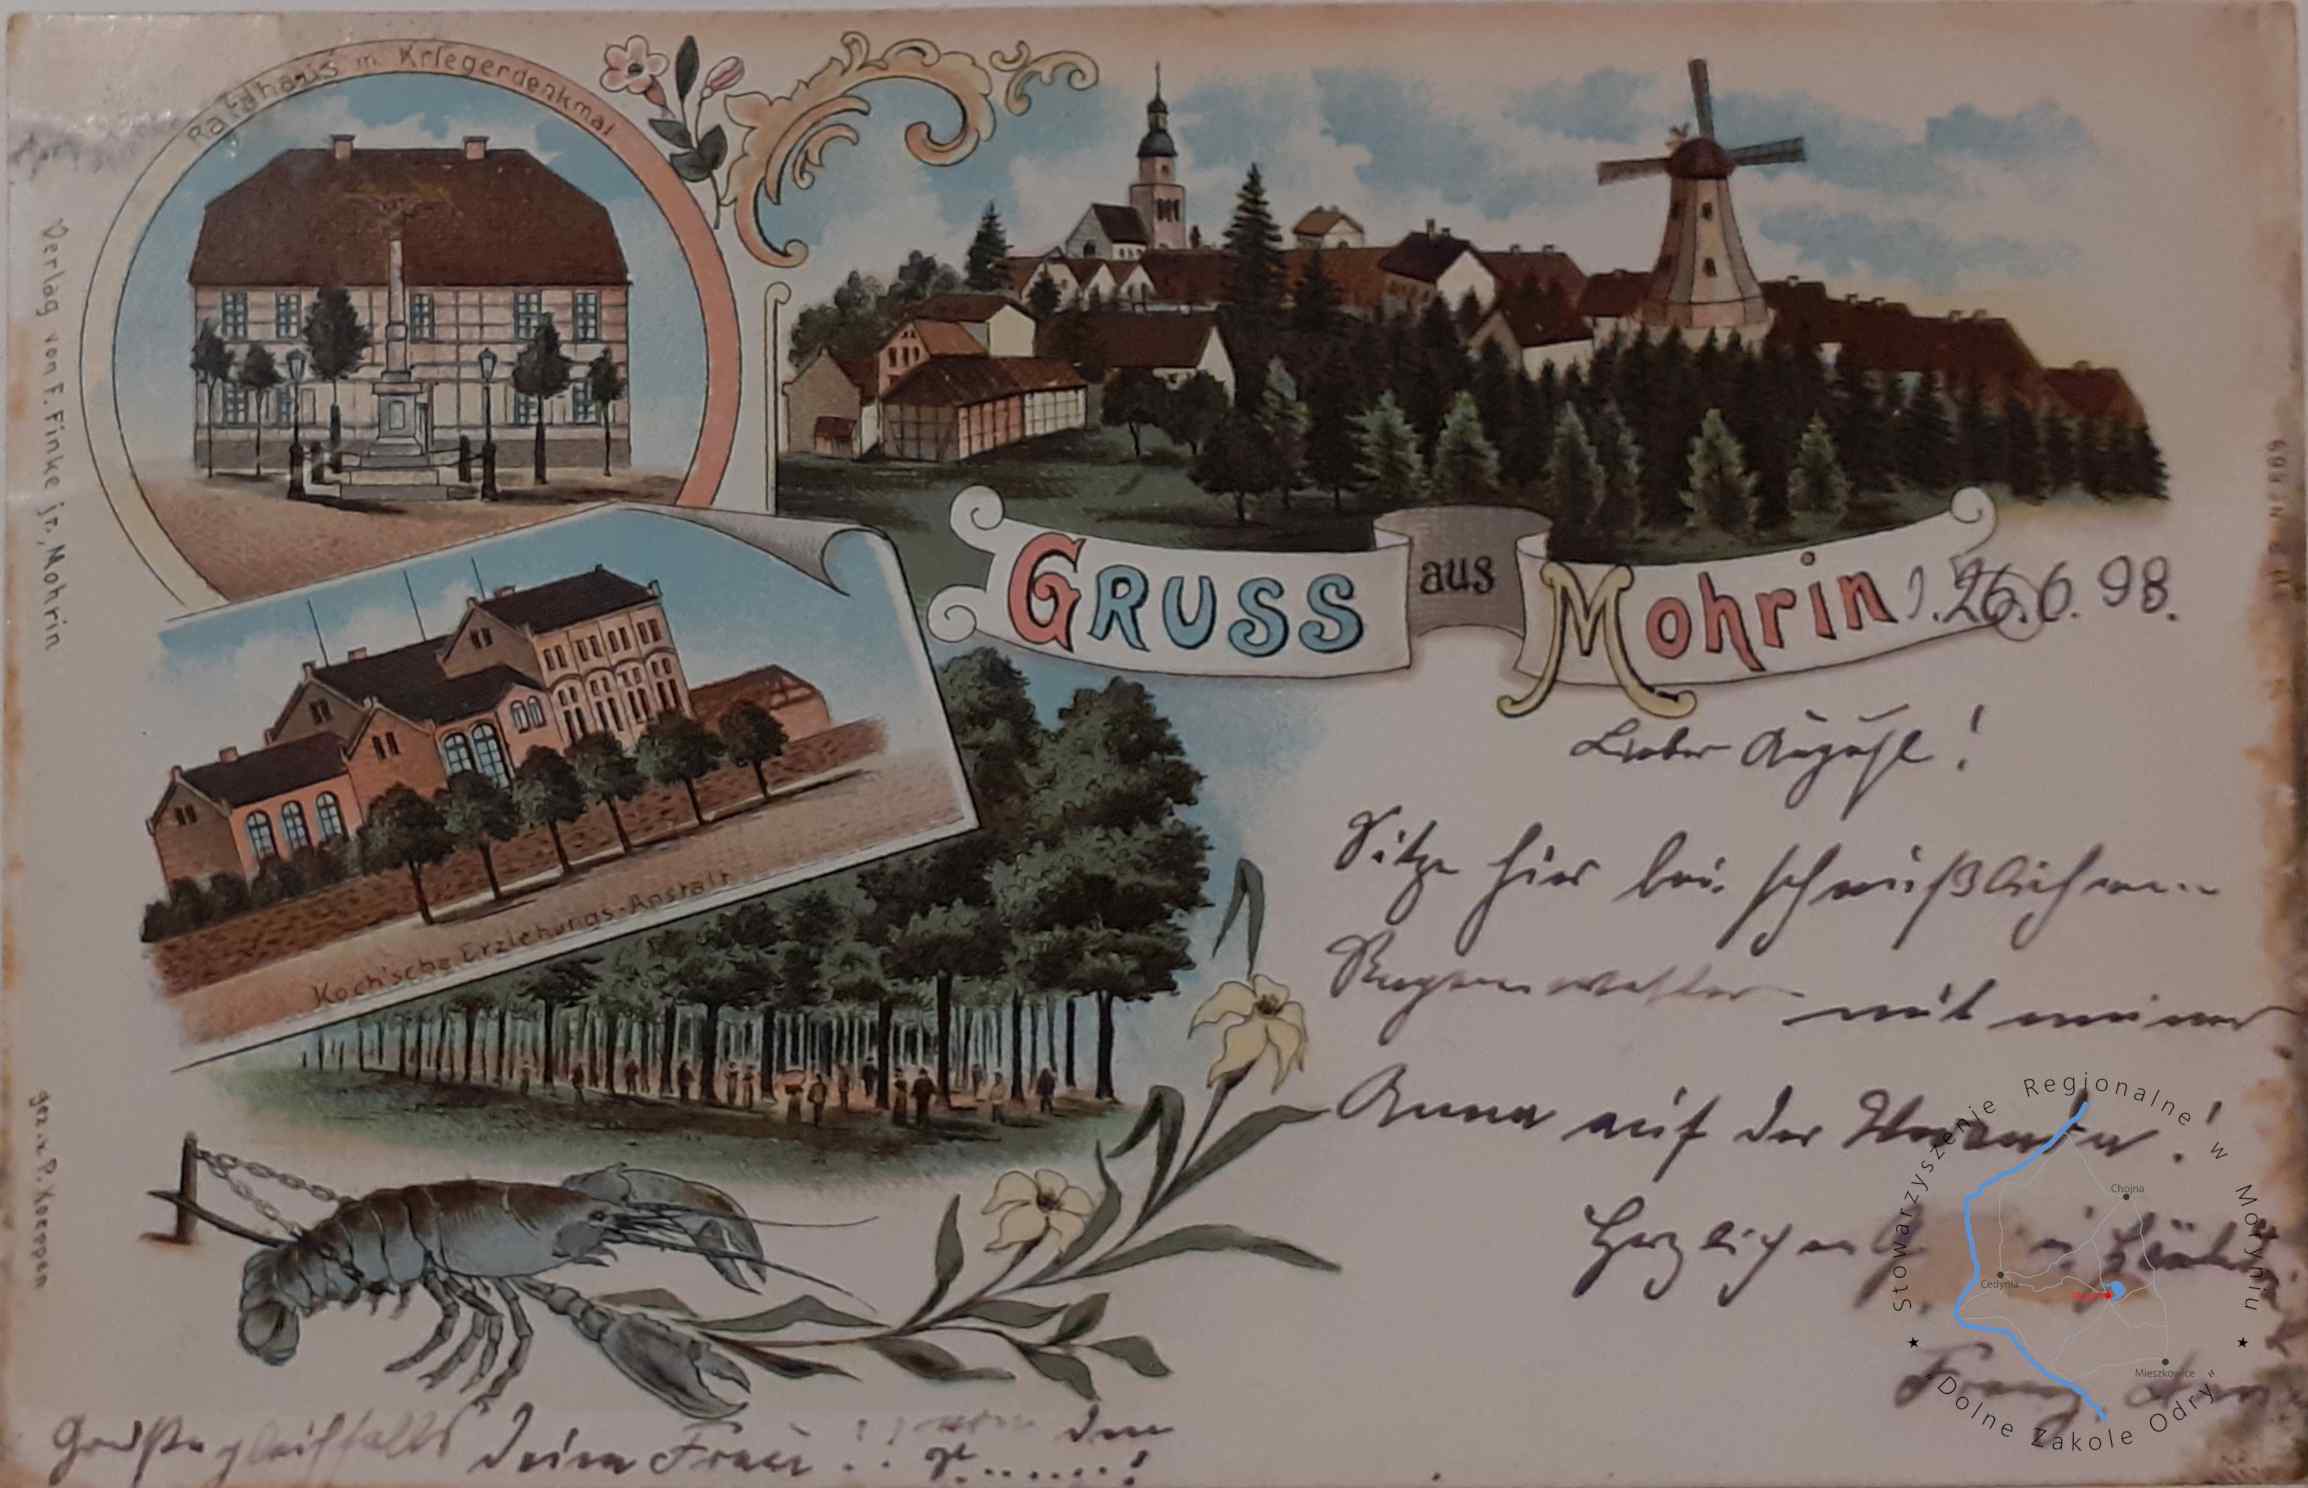 Rathaus m. Kriegerdenkmal
Verlag von F. Finke jr., Mohrin
gez. v. P. Koeppen
Koch'sche Erziehungs-Anstalt
GRUSS aus Mohrin, 26.6.98.
Lieber August!
Sitze hier bei scheußlichem
Regenwetter mit meiner
Anna auf der
Herzlichen
Franz
Grüße gleichfalls deine Frau
Stowarzyszenie Regionalne w Moryniu
"Dolne Zakole Odry"
Chojna
Cedynia
Mieszkowice